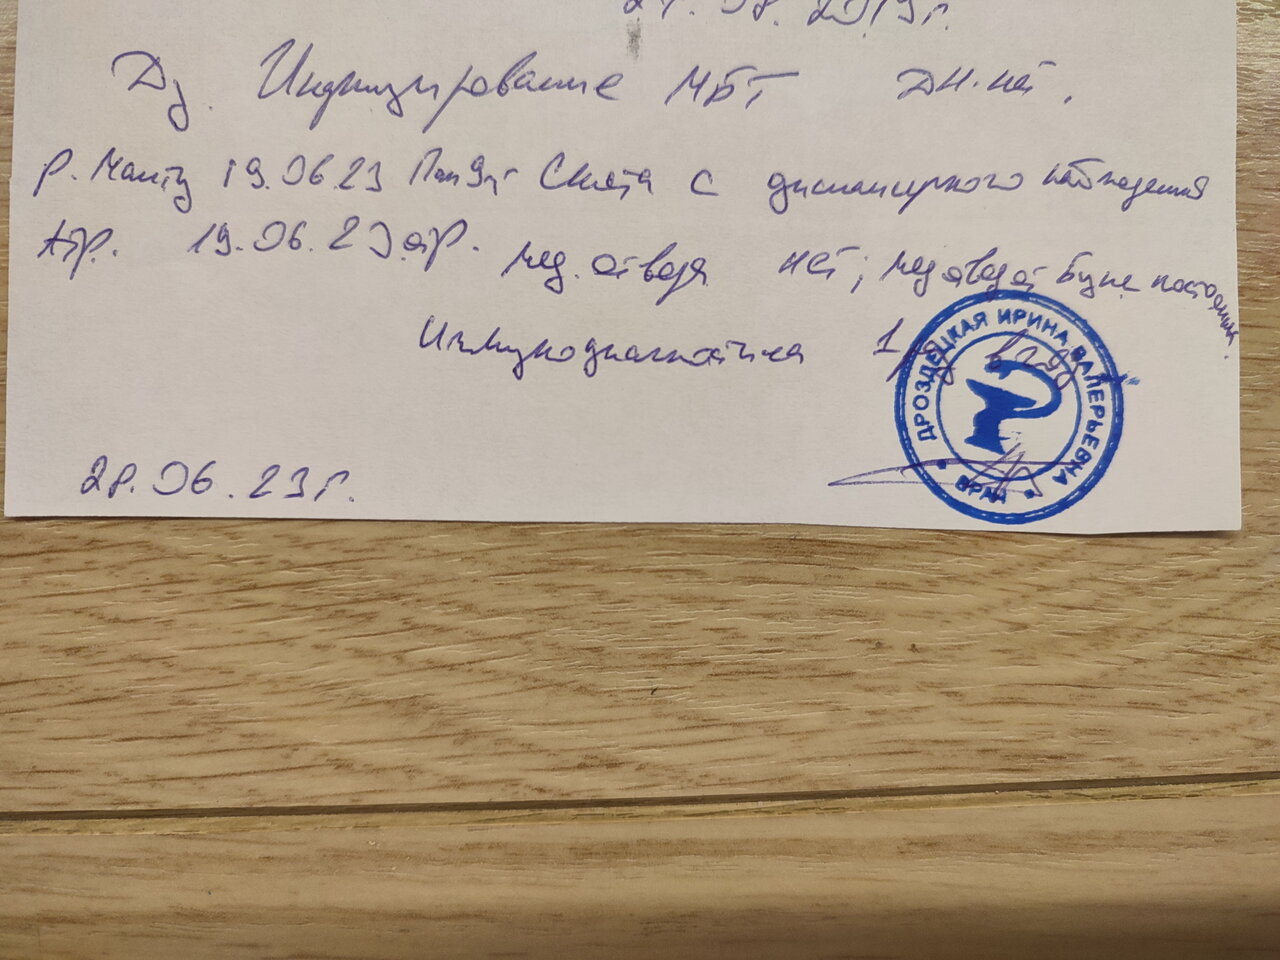 2019г.
Дз. Инфицирование МБТ ДН. нет.
р. Манту 19.06.23 Пап Снята с диспансерного наблюдения
Атр. 19.06.23 отр. мед. отвода нет; мед отвод от постоянный.
Иммунодиагностика 1
28.06.23г.
ДРОЗДЕЦКАЯ ИРИНА ВАЛЕРЬЕВНА
ВРАЧ